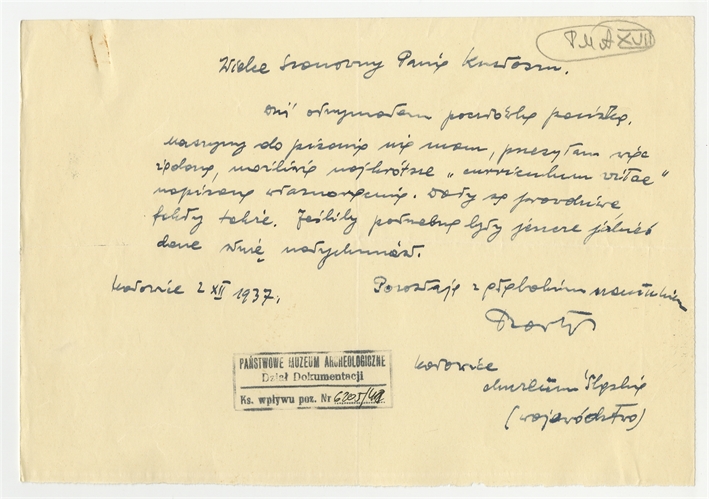 PMA XVII
Wielce Szanowny Panie Kustoszu.
Dziś otrzymałem pocztówkę
Maszyny do pisania nie mam, przesyłam więc
żądane, możliwie najkrótsze „curriculum vitae"
napisane własnoręcznie. Daty są prawdziwe
fakty także. Jeśliby potrzebne były jeszcze jakieś
dane służę natychmiast.
Katowice 2 XII 1937.
Pozostaję z głębokim szacunkiem
Katowice
Muzeum Śląskie
(województwo)
PAŃSTWOWE MUZEUM ARCHEOLOGICZNE
Dział Dokumentacji
Ks. wpływu poz. Nr 6205/48